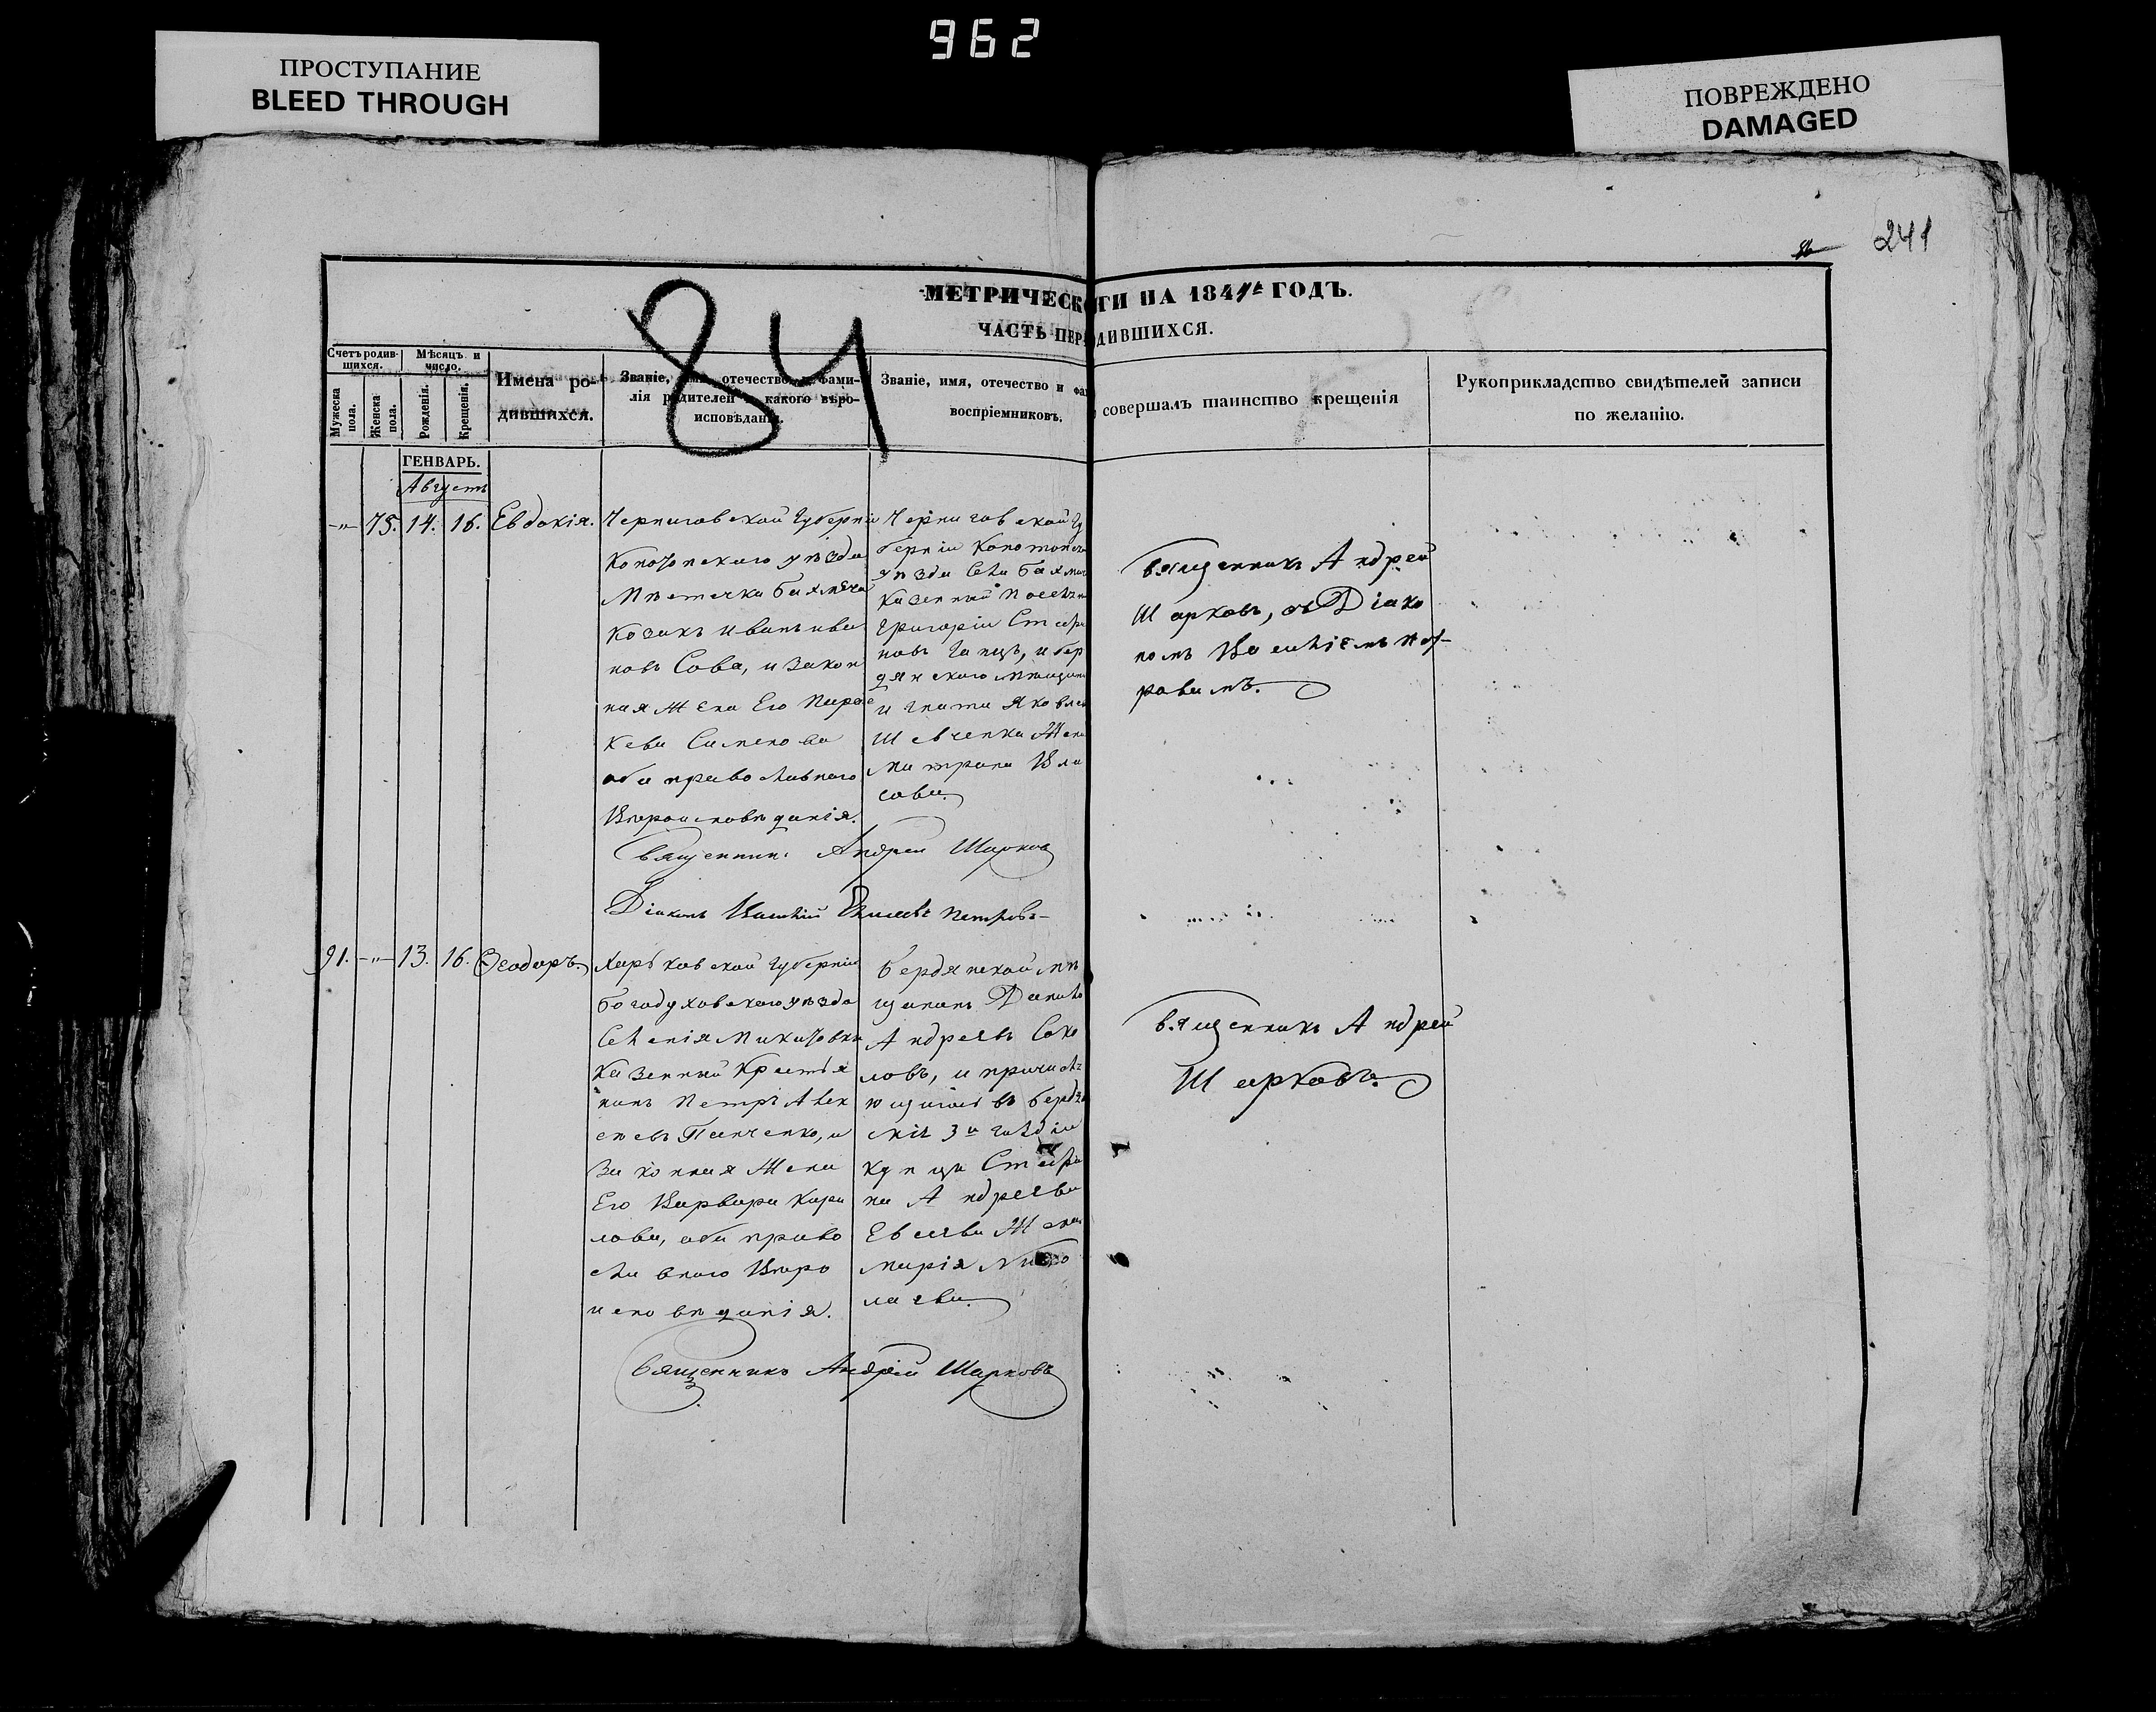 962
ПРОСТУПАНИЕ
BLEED THROUGH
ПОВРЕЖДЕНО
DAMAGED
241
84
МЕТРИЧЕСК ГИ НА 1841й ГОДЪ.
ЧАСТЬ ПЕР ДИВШИХСЯ.
Счетъ родив-
шихся.
Мужеска
пола.
Женска
пола.
Мѣсяцъ и
число.
Рожденія.
Крещенія.
Имена ро-
дившихся.
Званіе, имя, отечество, и фами-
лія родителей и какого вѣро-
исповѣданія.
Званіе, имя, отечество и фа
воспріемниковъ.
совершалъ таинство крещенія
Рукоприкладство свидѣтелей записи
по желанію.
ГЕНВАРЬ.
Августъ
-„- 75. 14. 16. Евдокія.
Черниговской Губерніи
Конотопскаго уѣзда
Мѣстечка Бахмача
Козакъ Иванъ Ива
новъ Сова, и Закон
ная Жена Его Парас
кева Симеонова
оба православнаго
Вѣроисповѣданія.
Черниговской Гу
берніи Конотопска
уѣзда Села Бахмач
Казенный Поселян
Григорій Стефа
новъ Ганцъ, и бер
дянскаго мѣщани
Игната Яковле
Шевченка Жена
Матрона Вла
сова.
Священникъ Андрей
Шарковъ, съ Діако
номъ Василіемъ Пет-
ровымъ.
Священникъ Андрей Шарковъ
Діаконъ Василій Петровъ
91. -„- 13. 16. Ѳеодоръ.
Харьковской Губерніи
Богодуховскаго уѣзда
Селенія Микитовки
Казенный Крестья
нинъ Петръ Алек
сѣевъ Панченко, и
Законная Жена
Его Варвара Кири
лова, оба право
славнаго Вѣро
исповѣданія.
Бердянской мѣ
щанинъ Данило
Андреевъ Соко
ловъ, и причисл
ющагося въ бердян
скіе 3й гильдіи
купца Стефа
на Андреева
Евсеева Жена
Марія Нико
лаева.
Священникъ Андрей
Шарковъ.
Священникъ Андрей Шарковъ